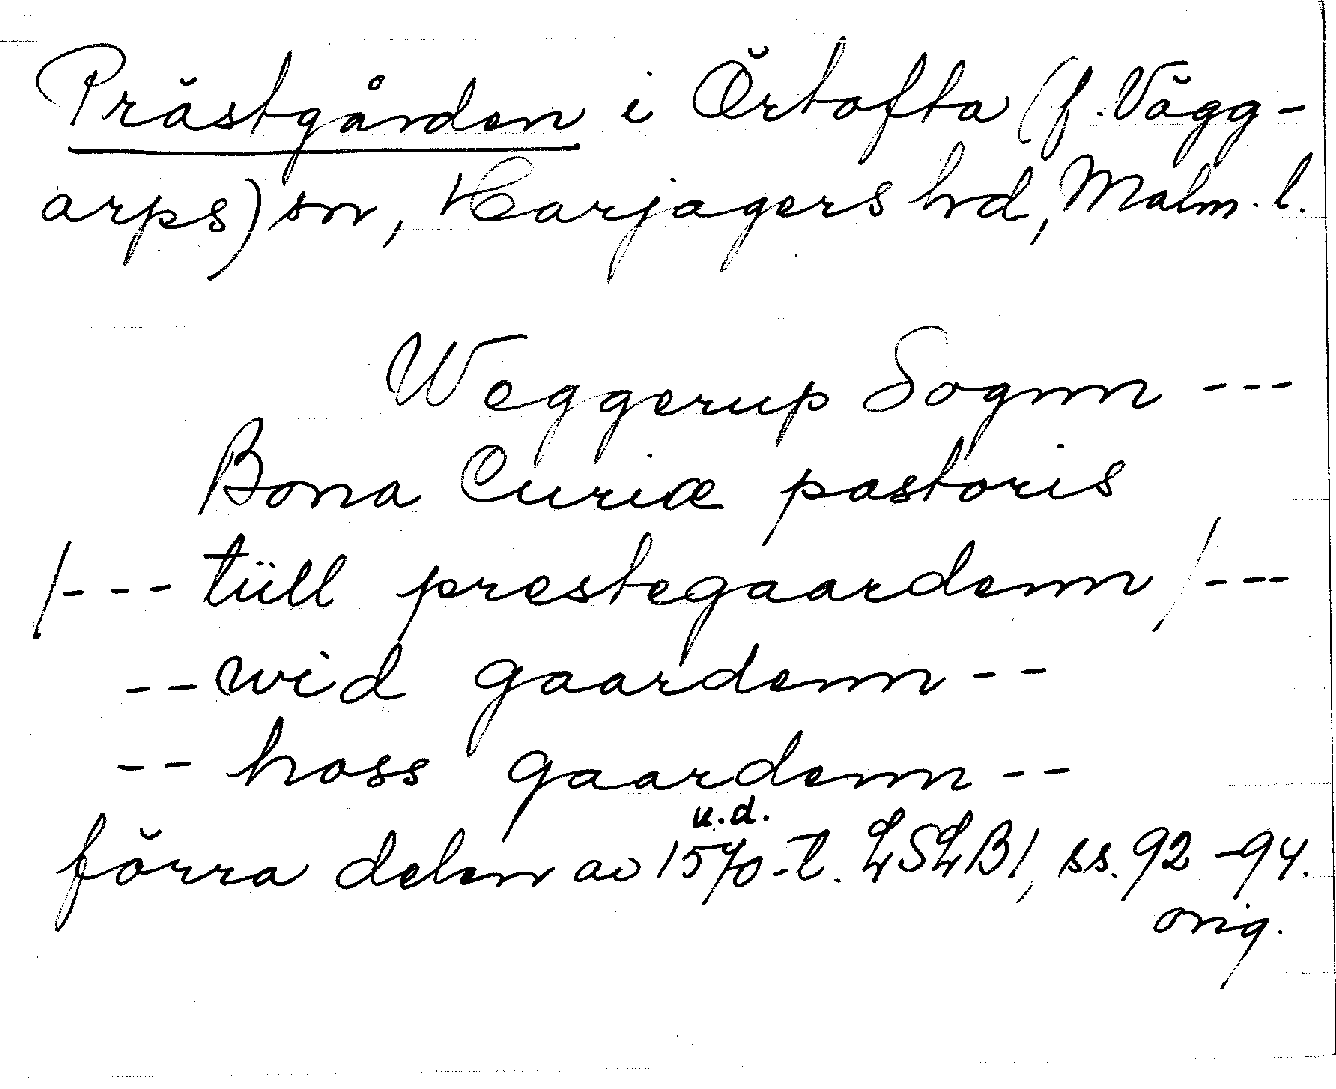 Prästgården i Örtofta (f. Vägg-
arps) sn, Harjagers hd, Malm. l.
Weggerup Sognn ---
Bona Curiæ pastoris
/--- tüll prestegaardenn /---
-- wid gaardenn --
-- hoss gaardenn --
u.d.
förra delen av 1570-t. LSLB1, ss. 92-94.
orig.